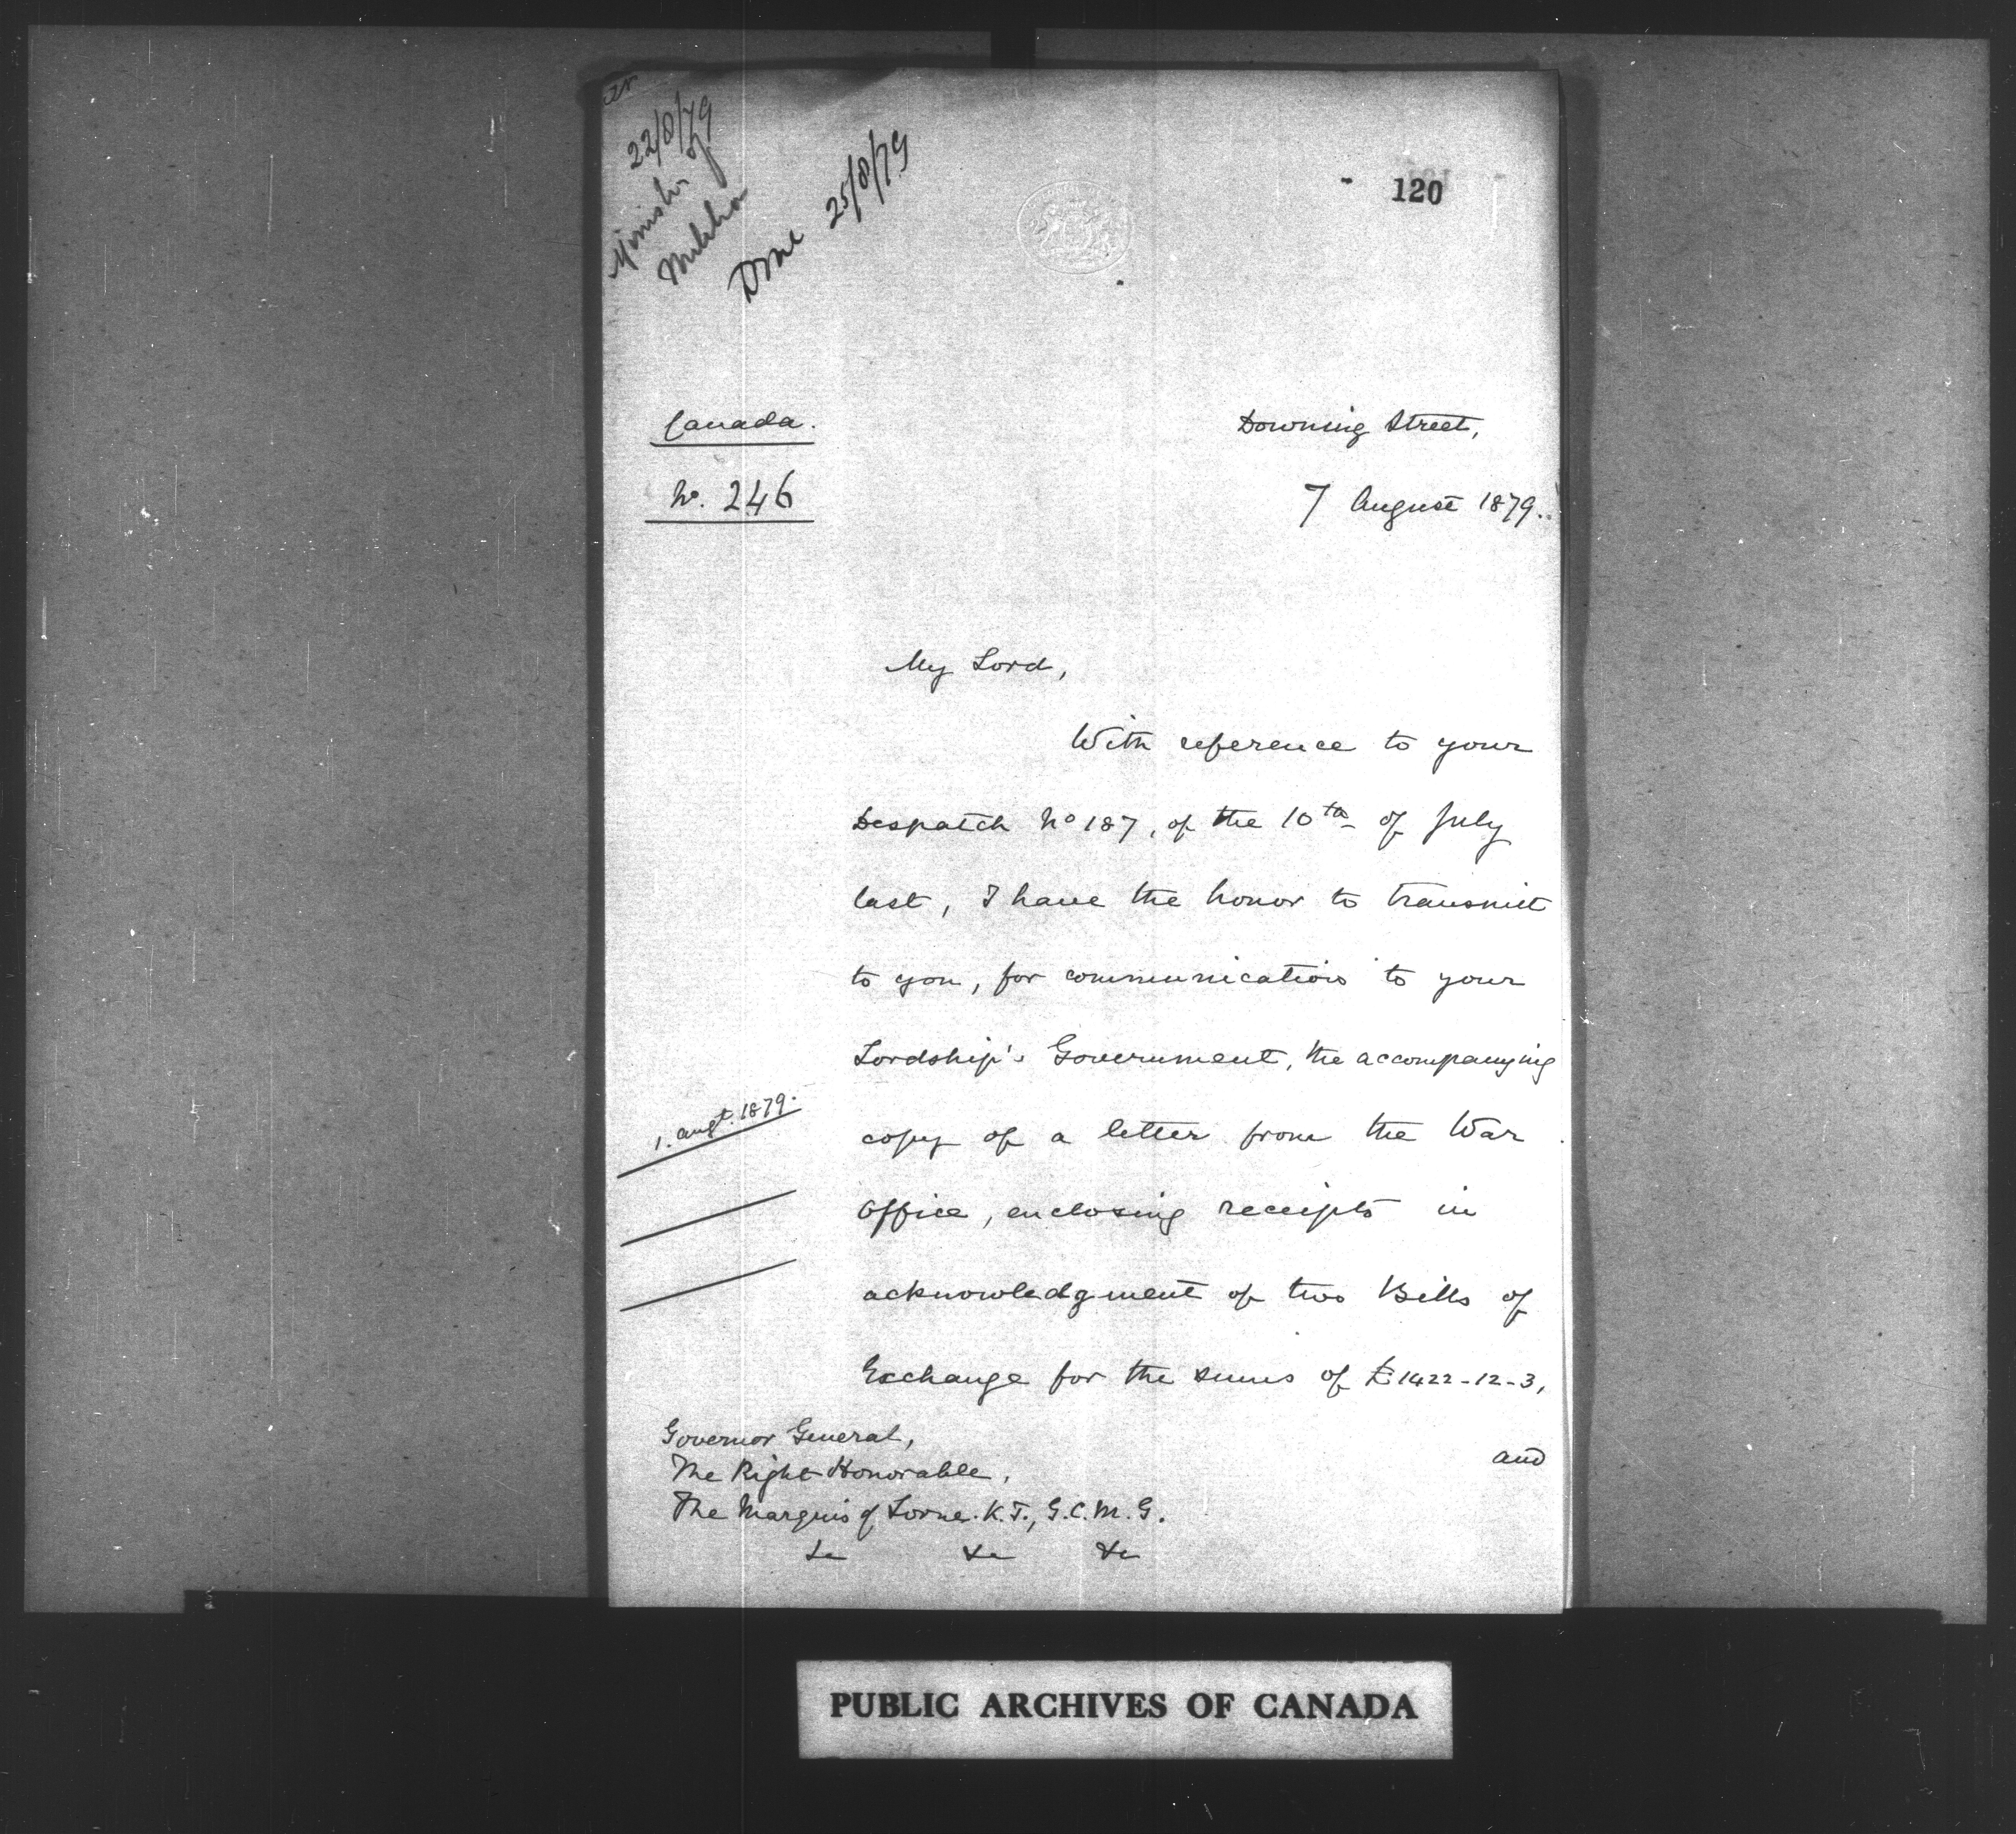 22/8/79
Minister of
Militia
Done 25/8/79
120
Canada.
No. 246
Downing Street,
7 August 1879.
My Lord,
With reference to your
Despatch No 187, of the 10th of July
last, I have the honor to transmit
to you, for communication to your
Lordship's Government, the accompanying
1. Augt. 1879.
copy of a letter from the War
Office, enclosing receipts in
acknowledgment of two Bills of
Exchange for the sums of £1422-12-3,
and
Governor General,
The Right Honorable,
The Marquis of Lorne. K.T., G.C.M.G.
&c &c &c
PUBLIC ARCHIVES OF CANADA